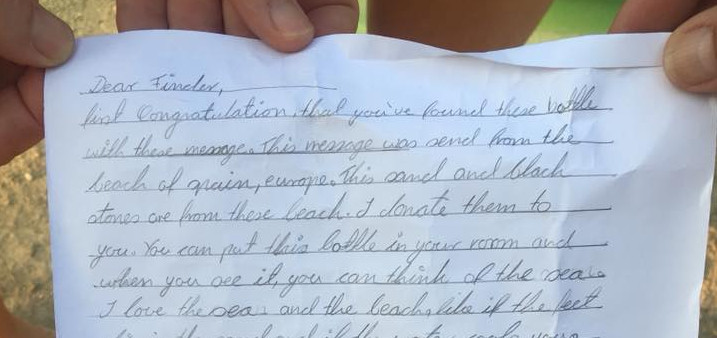 Dear Finder,
first Congratulation, that you've found these bottle
with these message. This message was send from the
beach of spain, europe. This sand and black
stones are from these beach. I donate them to
you. You can put this bottle in your room and
when you see it, you can think of the sea.
I love the sea and the beach, like if the feet
in the sand and if the water